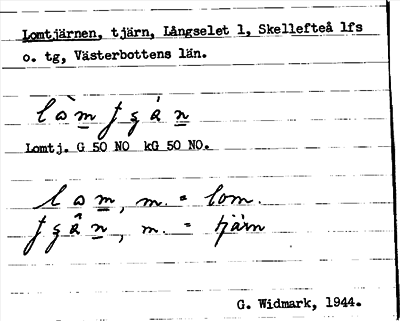 Lomtjärnen, tjärn, Långselet 1, Skellefteå lfs
o. tg, Västerbottens län.
Lomtj. G 50 NO kG 50 NO.
lom, m. = lom.
m. = tjärn
G. Widmark, 1944.